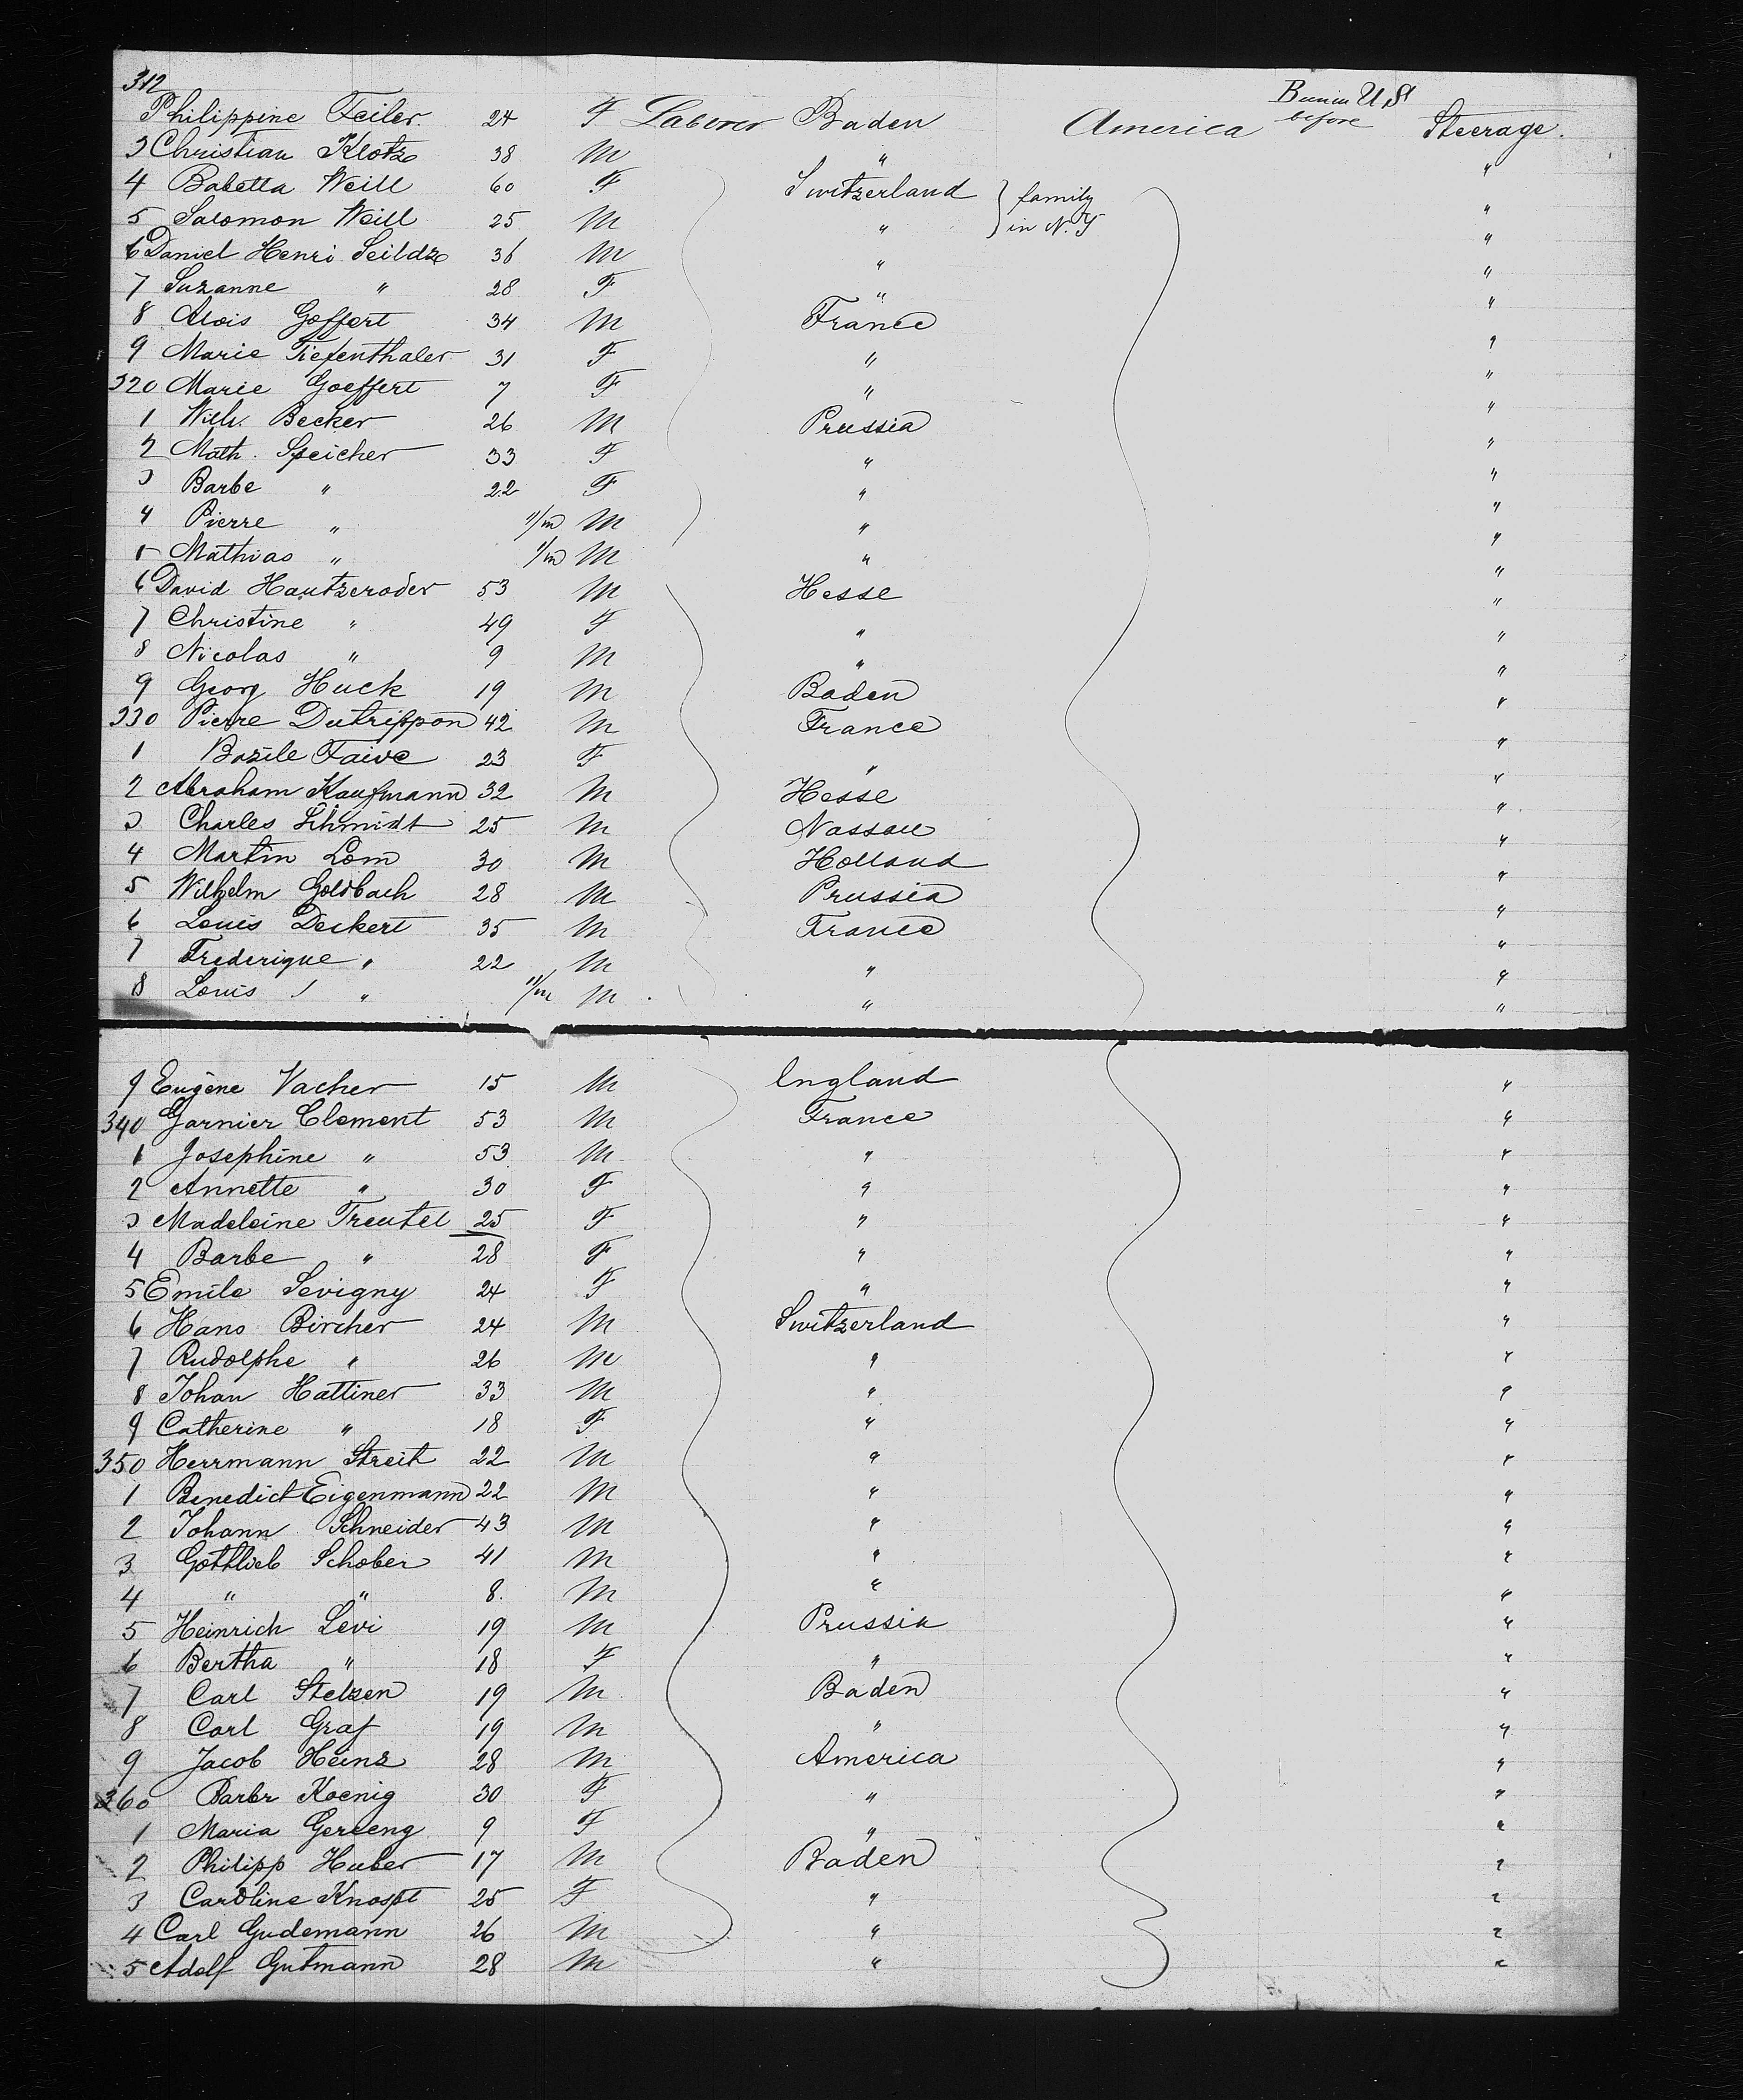 312
Philippine Feiler 24 F Laborer Baden America Been in U. St before Steerage.
3 Christian Klotz 38 M " "
4 Babetta Weill 60 F Switzerland } family "
5 Salomon Weill 25 M " } in N. Y "
6 Daniel Henri Seildz 36 M " "
7 Suzanne " 28 F " "
8 Alois Goffert 34 M France "
9 Marie Tiefenthaler 31 F " "
320 Marie Goeffert 7 F " "
1 Wilh. Becker 26 M Prussia "
2 Math. Speicher 33 F " "
3 Barbe " 22 F " "
4 Pierre " 11/m M " "
5 Mathias " 1/m M " "
6 David Hautzeroder 53 M Hesse "
7 Christine " 49 F " "
8 Nicolas " 9 M " "
9 Georg Huck 19 M Baden "
330 Pierre Dutrippon 42 M France "
1 Bazile Faive 23 F " "
2 Abraham Kaufmann 32 M Hesse "
3 Charles Schmidt 25 M Nassau "
4 Martin Lom 30 M Holland "
5 Wilhelm Goldbach 28 M Prussia "
6 Louis Deckert 35 M France "
7 Frederique " 22 M " "
8 Louis " 11/m M " "
9 Eugène Vacher 15 M England "
340 Garnier Clement 53 M France "
1 Josephine " 53 M " "
2 Annette " 30 F " "
3 Madeleine Treutel 25 F " "
4 Barbe " 28 F " "
5 Emile Sevigny 24 F " "
6 Hans Bircher 24 M Switzerland "
7 Rudolphe " 26 M " "
8 Johan Hattiner 33 M " "
9 Catherine " 18 F " "
350 Herrmann Streit 22 M " "
1 Benedict Eigenmann 22 M " "
2 Johann Schneider 43 M " "
3 Gottlieb Schober 41 M " "
4 " " 8 M " "
5 Heinrich Levi 19 M Prussia "
6 Bertha " 18 F " "
7 Carl Stelzen 19 M Baden "
8 Carl Graf 19 M " "
9 Jacob Heinz 28 M America "
360 Barbr Koenig 30 F " "
1 Maria Gereeng 9 F " "
2 Philipp Huber 17 M Baden "
3 Caroline Knospt 25 F " "
4 Carl Gudemann 26 M " "
5 Adolf Gutmann 28 M " "